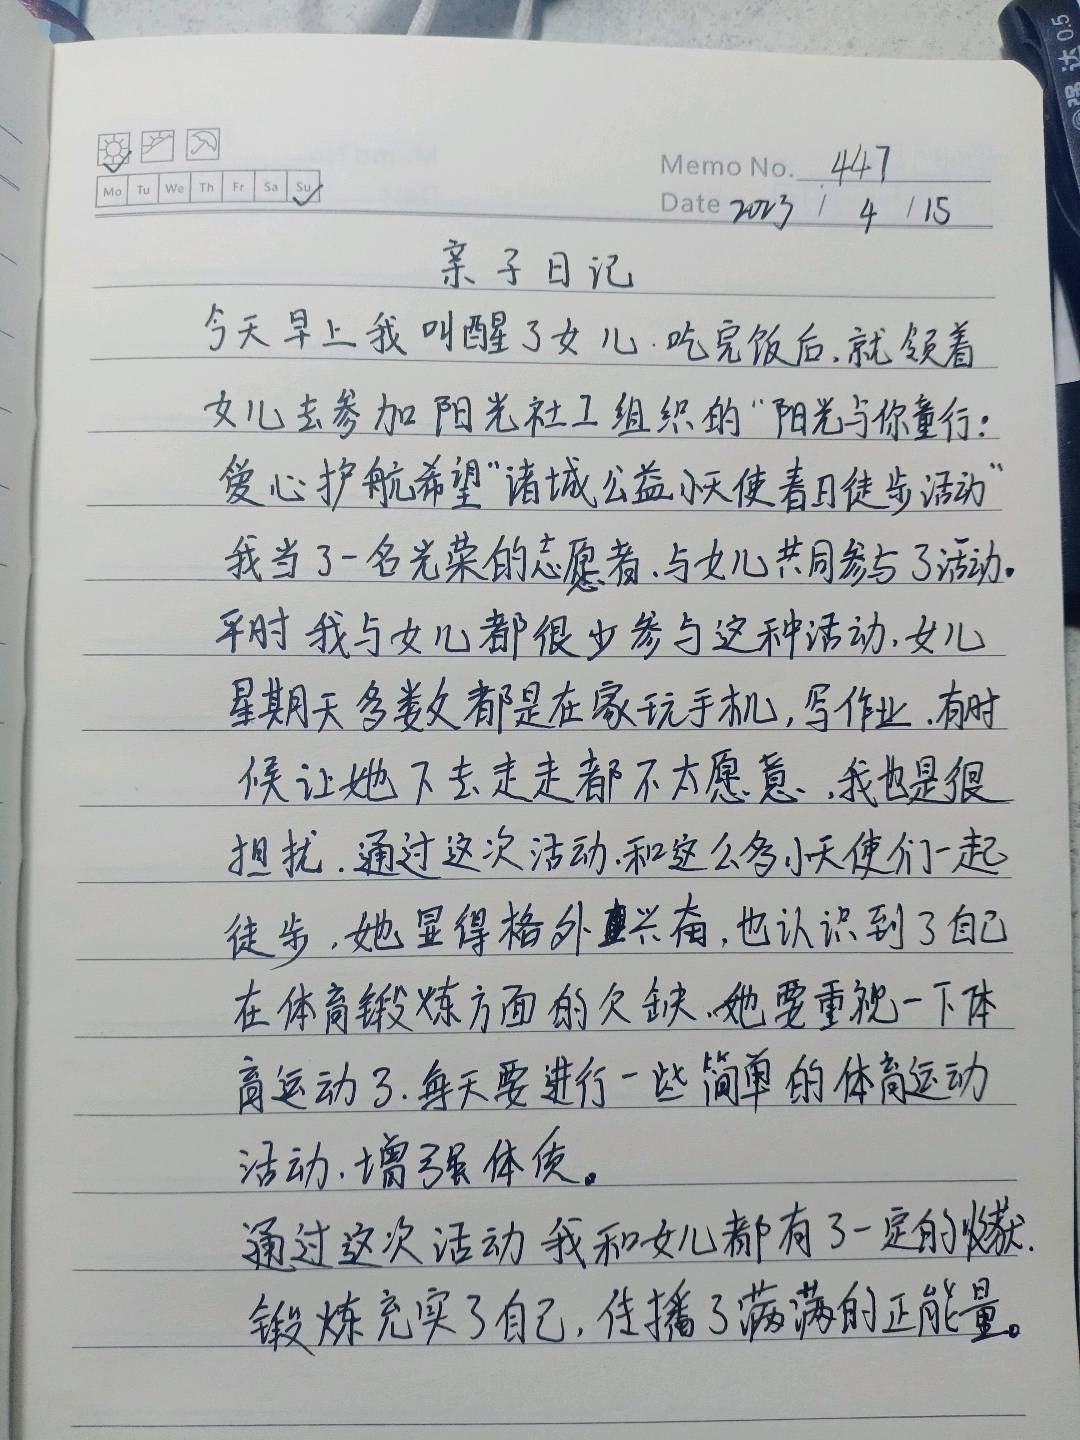 强达 0.5
Memo No. 447
Mo Tu We Th Fr Sa Su
Date 2023 / 4 / 15
亲子日记
今天早上我叫醒了女儿.吃完饭后,就领着
女儿去参加阳光社工组织的"阳光与你童行:
爱心护航希望"诸城公益小天使春日徒步活动"
我当了一名光荣的志愿者、与女儿共同参与了活动。
平时我与女儿都很少参与这种活动,女儿
星期天多数都是在家玩手机,写作业,有时
候让她下去走走都不太愿意,我也是很
担扰.通过这次活动,和这么多小天使们一起
徒步,她显得格外兴奋,也认识到了自己
在体育锻炼方面的欠缺,她要重视一下体
育运动了.每天要进行一些简单的体育运动
活动、增强体质。
通过这次活动我和女儿都有了一定的收获.
锻炼充实了自己,传播了满满的正能量。